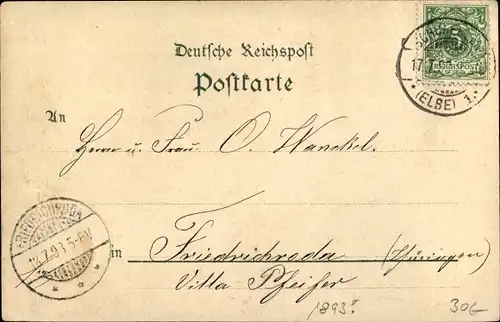 Deutsche Reichspost
Postkarte
REICHSPOST
17.7
* (ELBE) 1. *
An
Herrn u. Frau O. Wanckel.
FRIEDRICHRODA
18.7.93.5-6N
in Friedrichroda (Thüringen)
Villa Pfeifer
1893?
30£